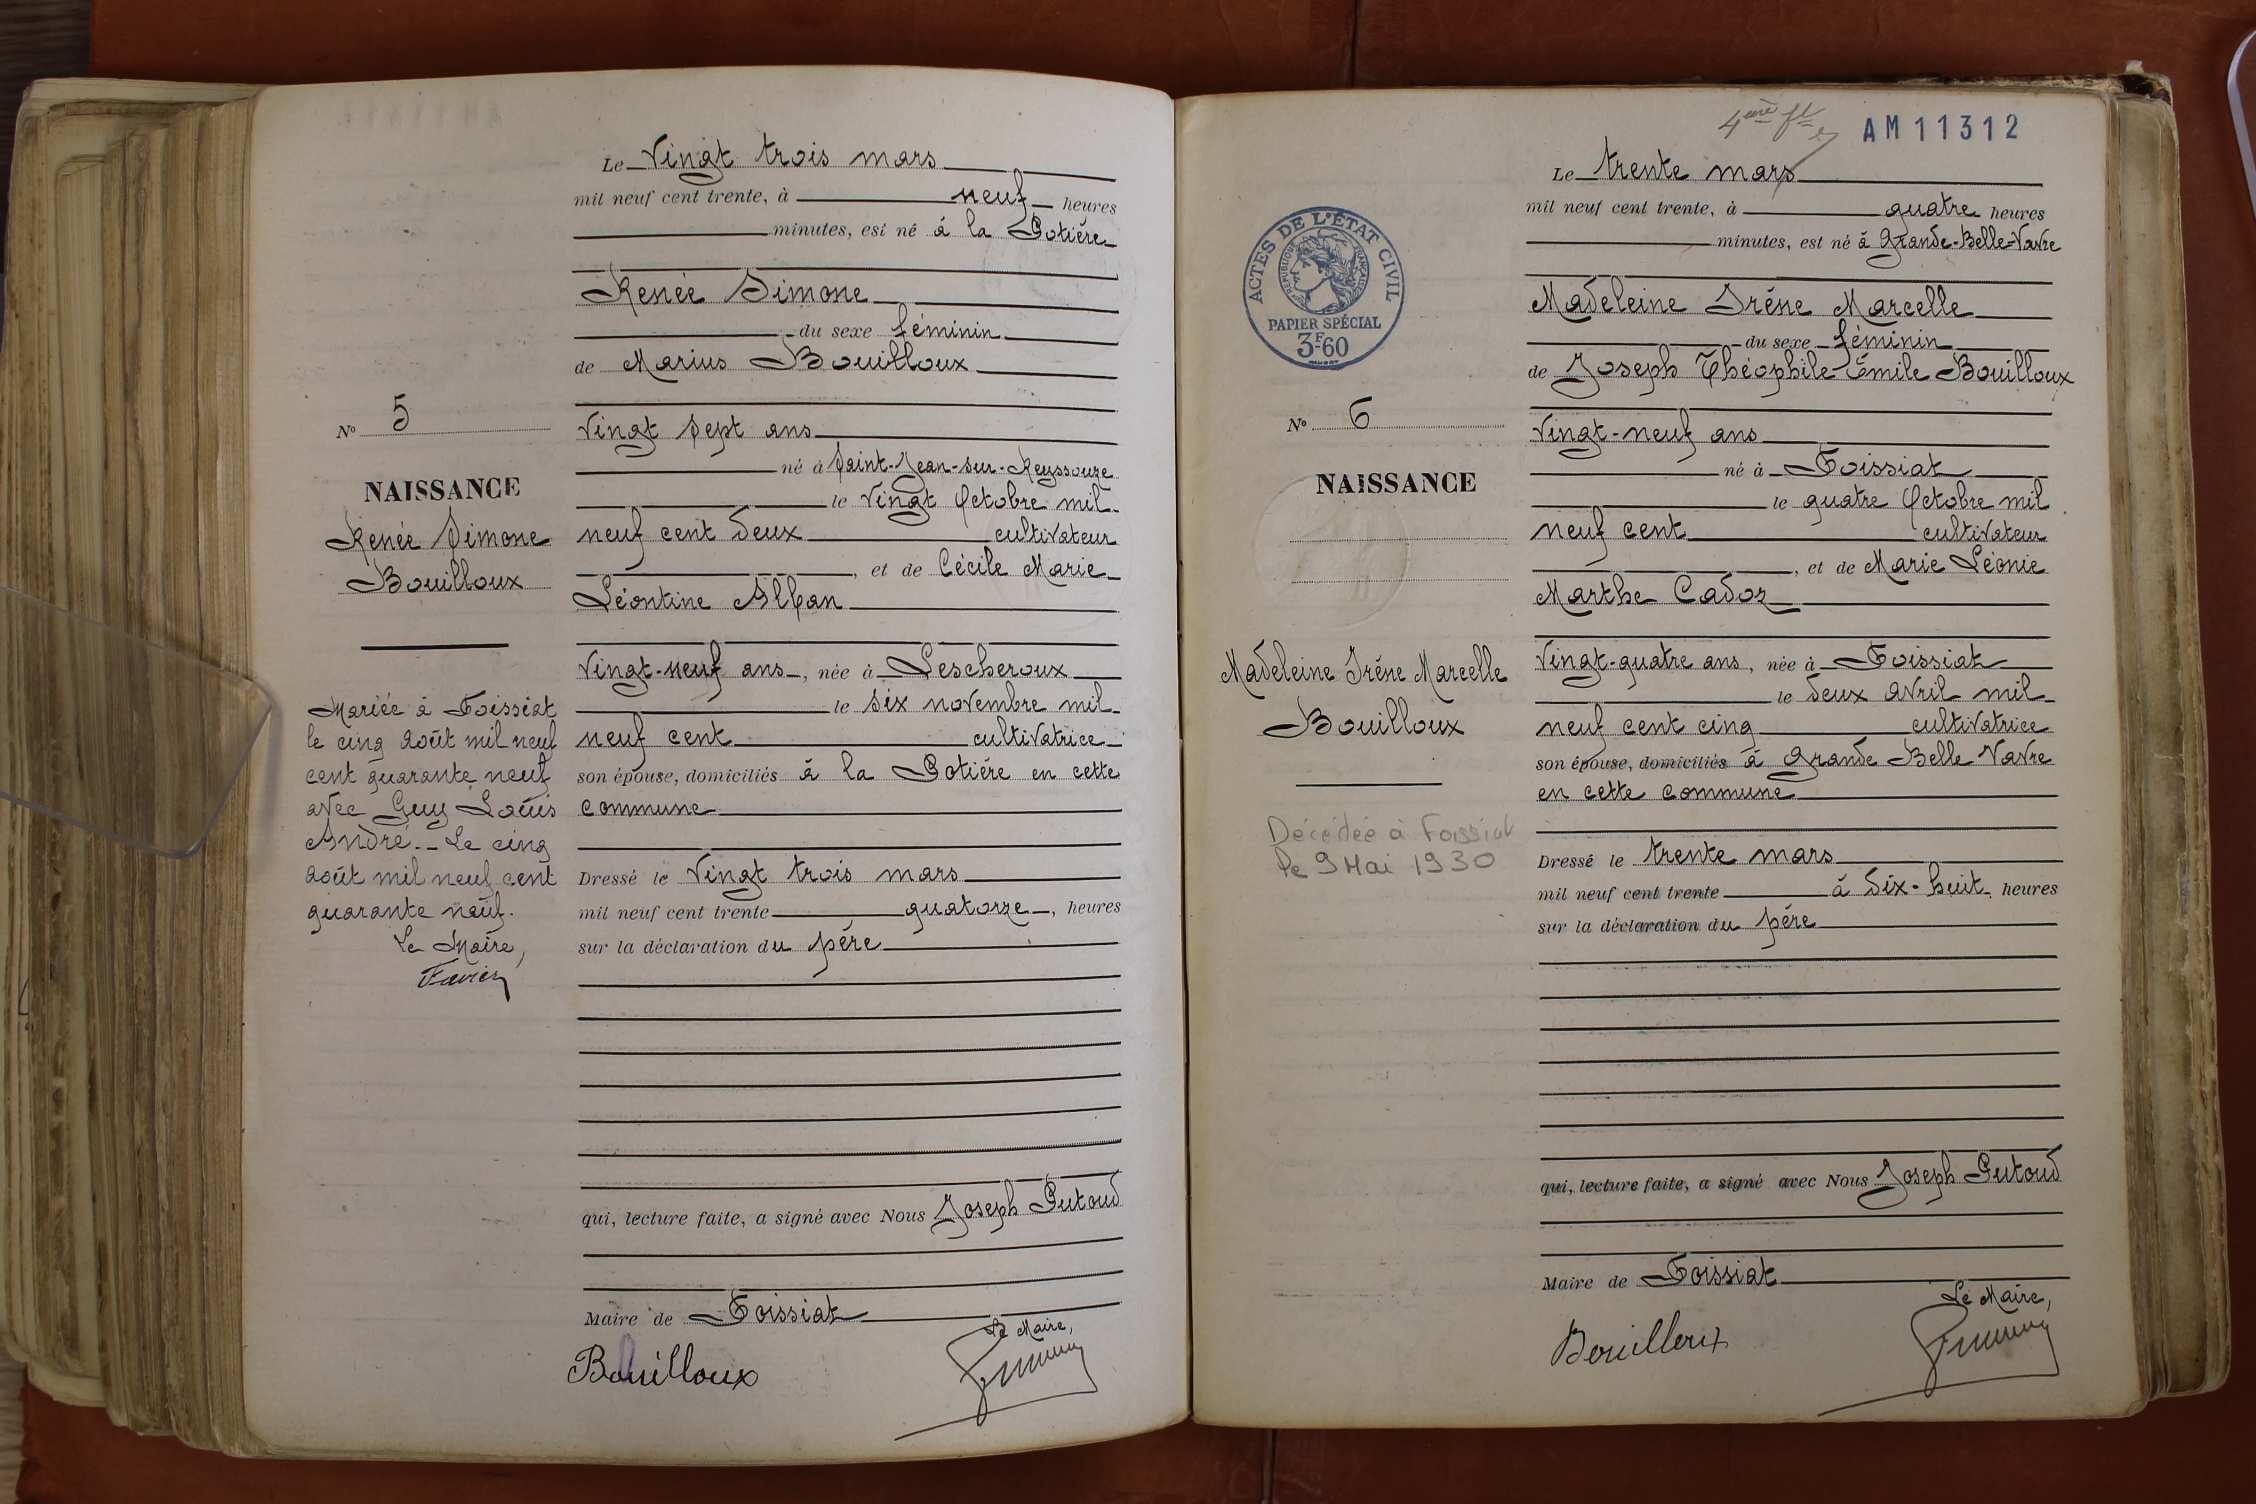 Le Vingt trois mars
mil neuf cent trente, à neuf heures
minutes, est né à la Potière
Renée Simone
du sexe féminin
de Marius Bouilloux
Vingt sept ans
né à Saint-Jean-sur-Reyssouze
le Vingt Octobre mil
neuf cent deux cultivateur
, et de Cécile Marie
Léontine Alban
Vingt-neuf ans, née à Lescheroux
le six novembre mil
neuf cent cultivatrice
son épouse, domiciliés à la Potière en cette
commune
Dressé le Vingt trois mars
mil neuf cent trente quatorze, heures
sur la déclaration du père
qui, lecture faite, a signé avec Nous Joseph Putoud
Maire de Foissiat
Le Maire,
Bouilloux
No 5
NAISSANCE
Renée Simone
Bouilloux
Mariée à Foissiat
le cinq août mil neuf
cent quarante neuf
avec Guy Louis
André. _ Le cinq
août mil neuf cent
quarante neuf.
Le Maire,
Favier
4eme ft
AM11312
Le trente mars
mil neuf cent trente, à quatre heures
minutes, est né à Grande-Belle-Vavre
Madeleine Irène Marcelle
du sexe féminin
de Joseph Théophile Émile Bouilloux
Vingt-neuf ans
né à Foissiat
le quatre Octobre mil
neuf cent cultivateur
, et de Marie Léonie
Marthe Cadoz
Vingt-quatre ans, née à Foissiat
le deux avril mil
neuf cent cinq cultivatrice
son épouse, domiciliés à Grande Belle Vavre
en cette commune
Dressé le trente mars
mil neuf cent trente à dix-huit heures
sur la déclaration du père
qui, lecture faite, a signé avec Nous Joseph Putoud
Maire de Foissiat
Le Maire,
Bouilloux
ACTES DE L'ÉTAT CIVIL
RÉPUBLIQUE FRANÇAISE
PAPIER SPÉCIAL
3F60
No 6
NAISSANCE
Madeleine Irène Marcelle
Bouilloux
Décédée à Foissiat
le 9 Mai 1930